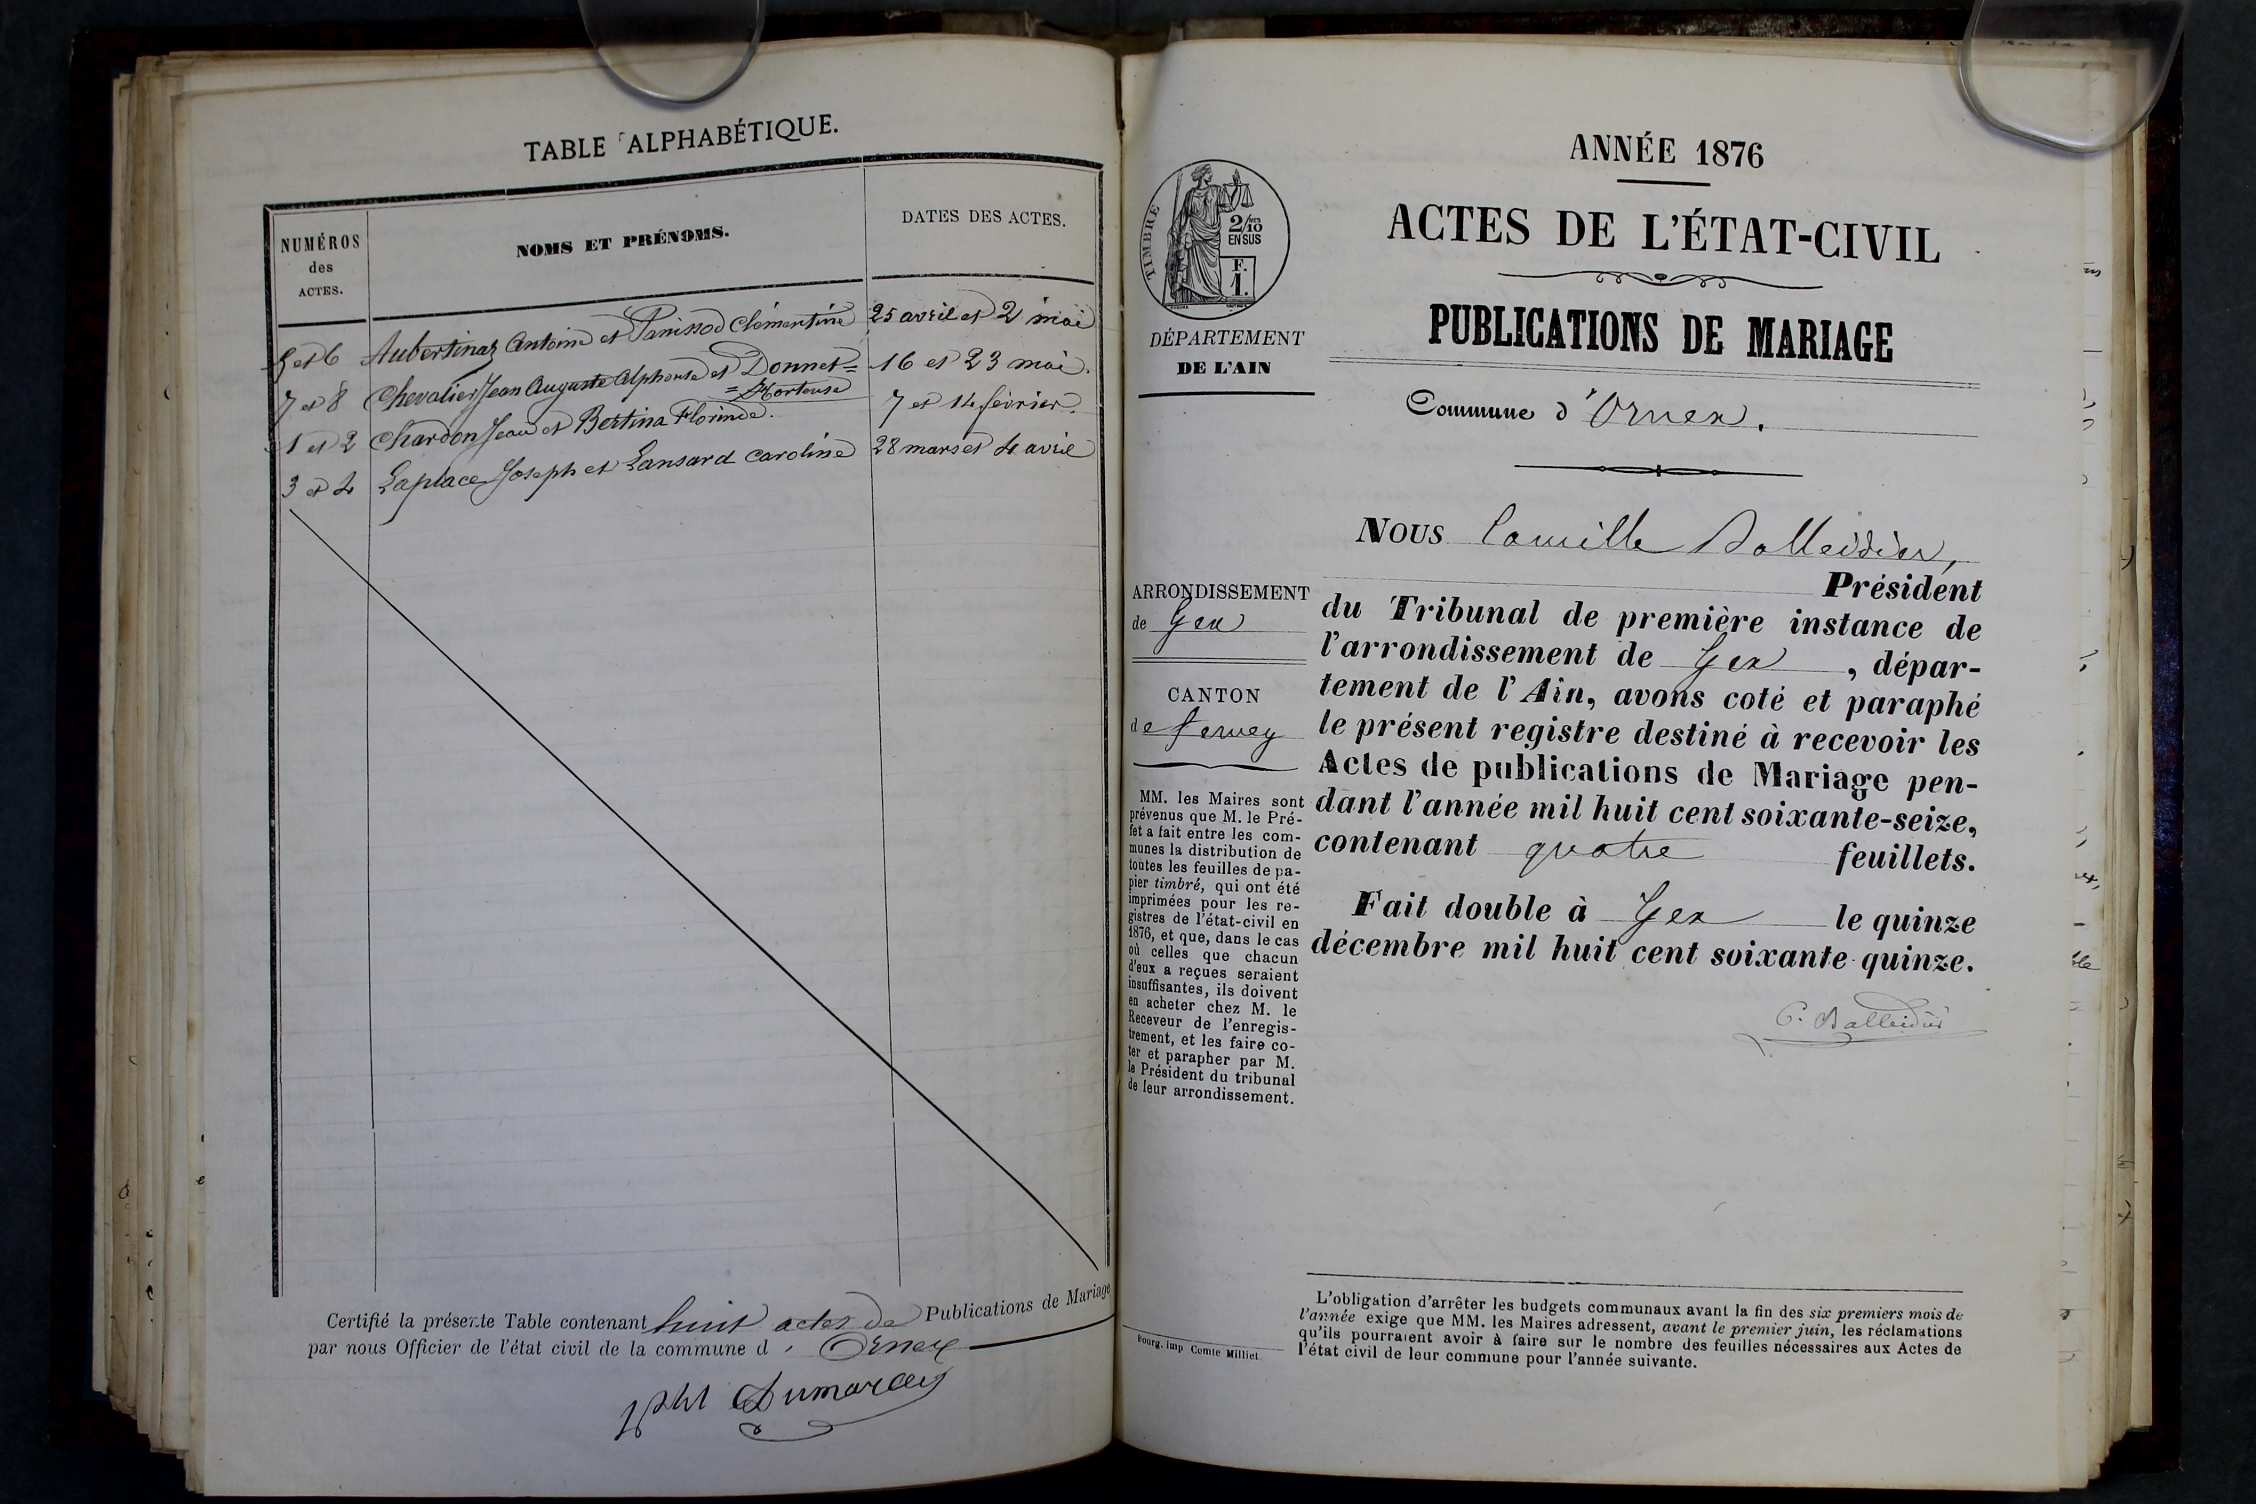 TABLE ALPHABÉTIQUE.
NUMÉROS
des
ACTES.
NOMS ET PRÉNOMS.
DATES DES ACTES.
5 et 6 Aubertinaz Antoine et Panissod Clémentine 25 avril et 2 mai
7 et 8 Chevalier Jean Auguste Alphonse et Donnet= 16 et 23 mai.
=Hortense
1 et 2 Chardon Jean et Bertina Florinde. 7 et 14 février.
3 et 4 Laplace Joseph et Lansard Caroline 28 mars et 4 avril
Certifié la présente Table contenant huit actes de Publications de Mariage
par nous Officier de l'état civil de la commune d' Ornex
Dumarais
TIMBRE
2/10
EN SUS
F.
1.
DÉPARTEMENT
DE L'AIN
ARRONDISSEMENT
de Gex
CANTON
de Ferney
MM. les Maires sont
prévenus que M. le Pré-
fet a fait entre les com-
munes la distribution de
toutes les feuilles de pa-
pier timbré, qui ont été
imprimées pour les re-
gistres de l'état-civil en
1876, et que, dans le cas
où celles que chacun
d'eux a reçues seraient
insuffisantes, ils doivent
en acheter chez M. le
Receveur de l'enregis-
trement, et les faire co-
ter et parapher par M.
le Président du tribunal
de leur arrondissement.
Bourg, imp Comte Milliet
ANNÉE 1876
ACTES DE L'ÉTAT-CIVIL
PUBLICATIONS DE MARIAGE
Commune d'Ornex.
NOUS Camille Balleidier,
Président
du Tribunal de première instance de
l'arrondissement de Gex, dépar-
tement de l'Ain, avons coté et paraphé
le présent registre destiné à recevoir les
Actes de publications de Mariage pen-
dant l'année mil huit cent soixante-seize,
contenant quatre feuillets.
Fait double à Gex le quinze
décembre mil huit cent soixante-quinze.
C. Balleidier
L'obligation d'arrêter les budgets communaux avant la fin des six premiers mois de
l'année exige que MM. les Maires adressent, avant le premier juin, les réclamations
qu'ils pourraient avoir à faire sur le nombre des feuilles nécessaires aux Actes de
l'état civil de leur commune pour l'année suivante.